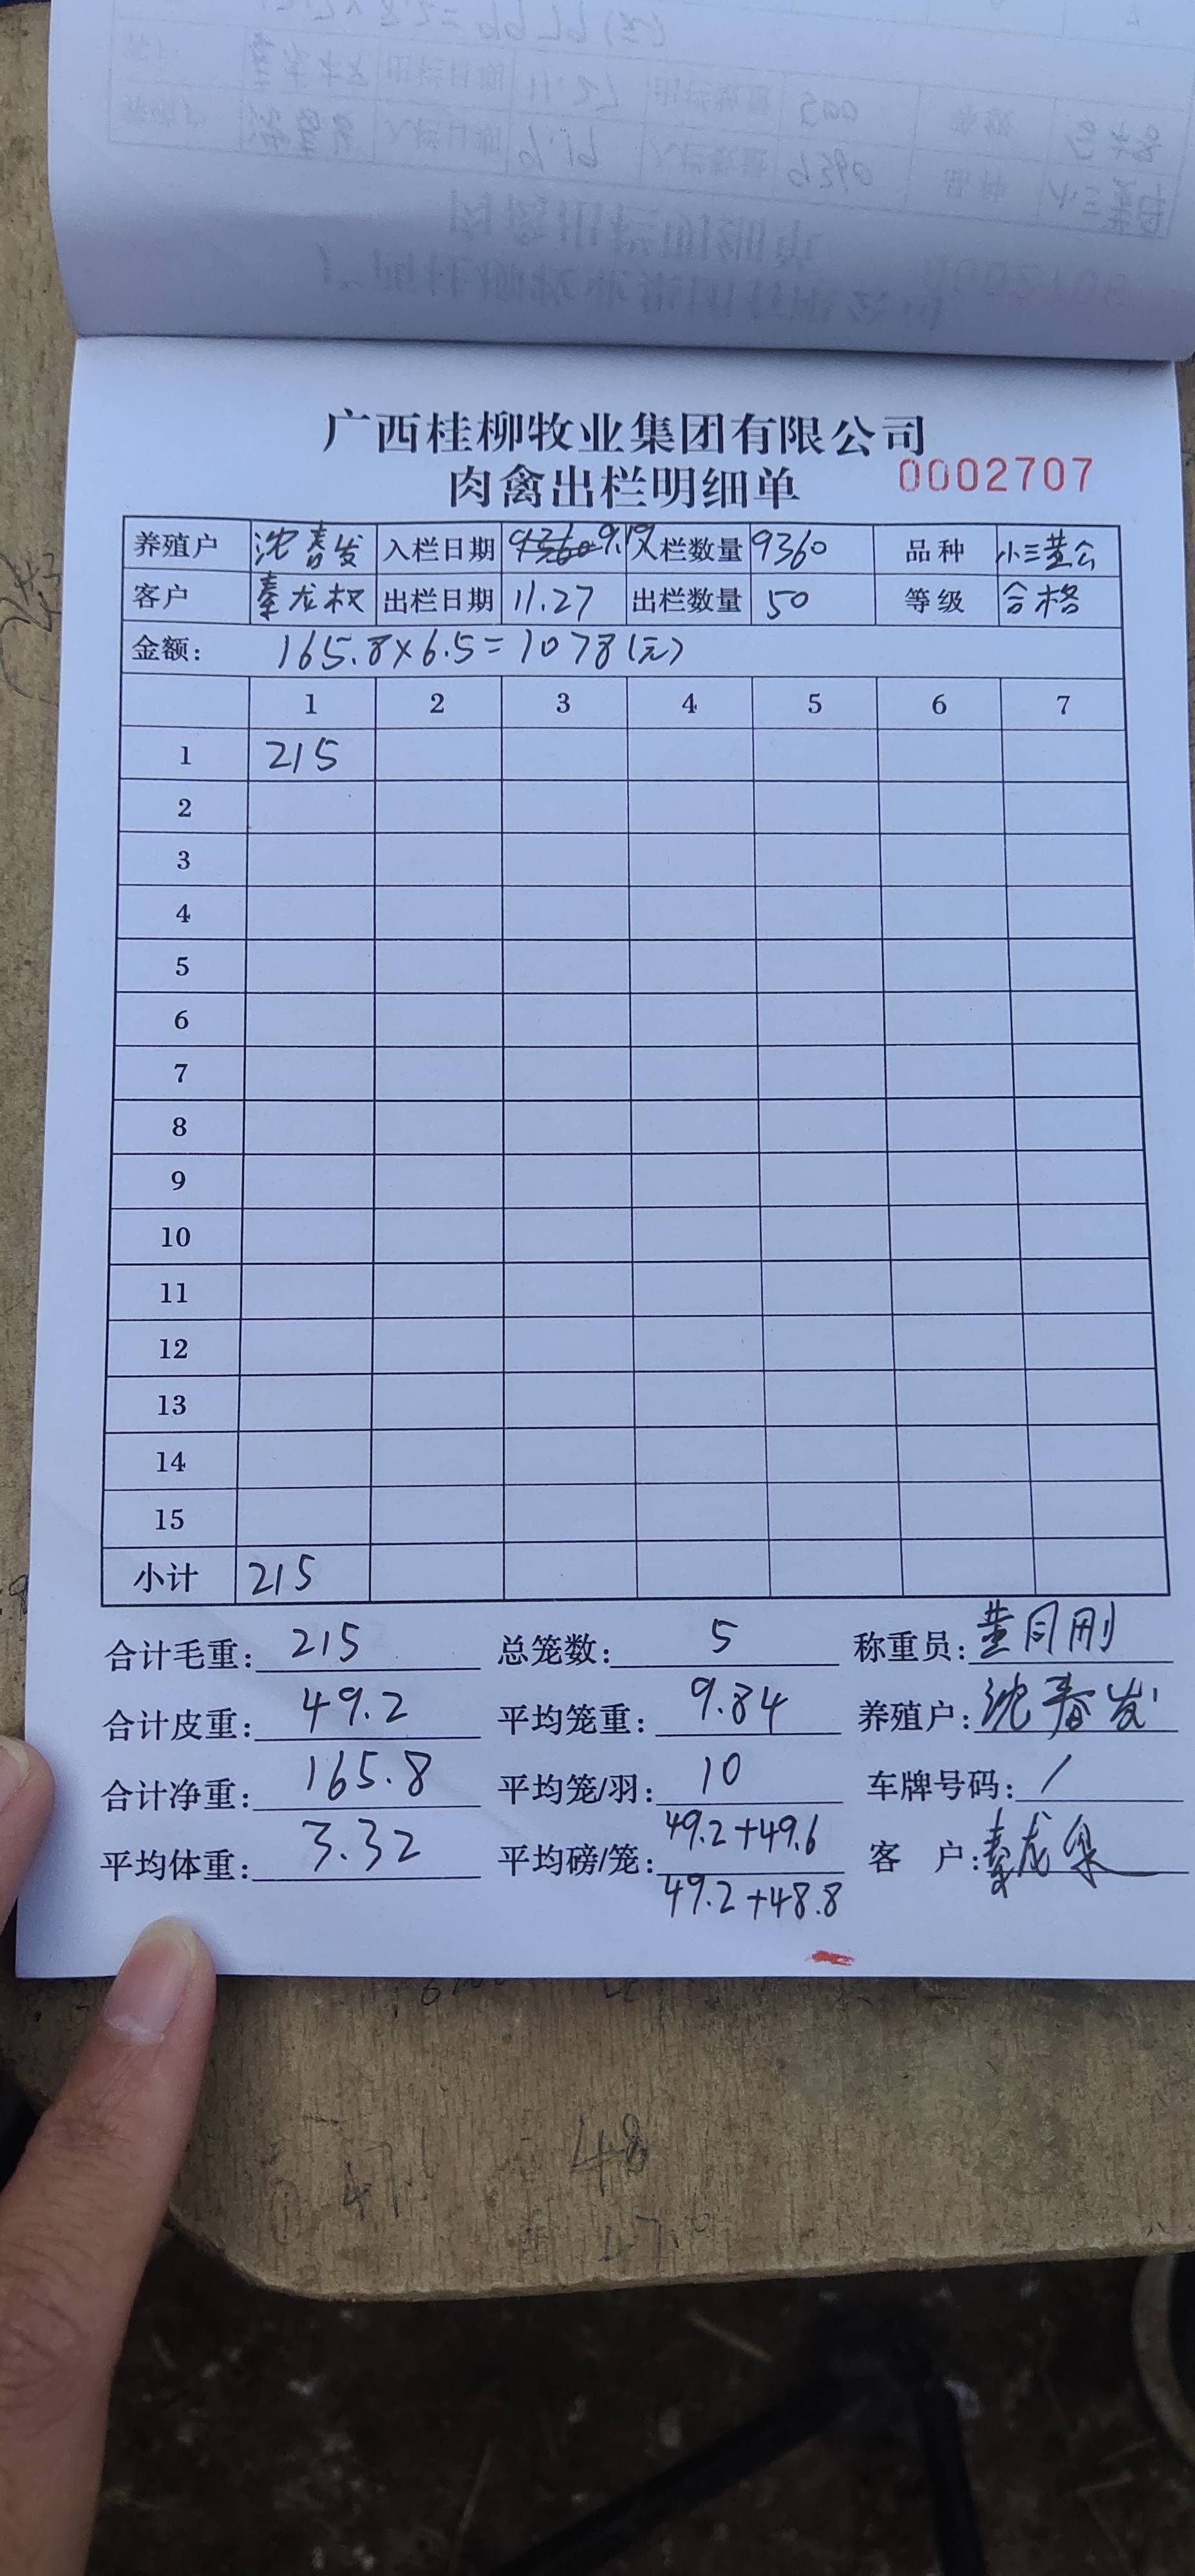 广西桂柳牧业集团有限公司
肉禽出栏明细单 0002707
养殖户 沈春发 入栏日期 9.19 入栏数量 9360 品种 小三黄公
客户 秦龙权 出栏日期 11.27 出栏数量 50 等级 合格
金额: 165.8×6.5=1078(元)
1 2 3 4 5 6 7
1 215
2
3
4
5
6
7
8
9
10
11
12
13
14
15
小计 215
合计毛重: 215 总笼数: 5 称重员: 黄同刚
合计皮重: 49.2 平均笼重: 9.84 养殖户: 沈春发
合计净重: 165.8 平均笼/羽: 10 车牌号码: /
平均体重: 3.32 平均磅/笼: 49.2+49.6 客 户: 秦龙
49.2+48.8